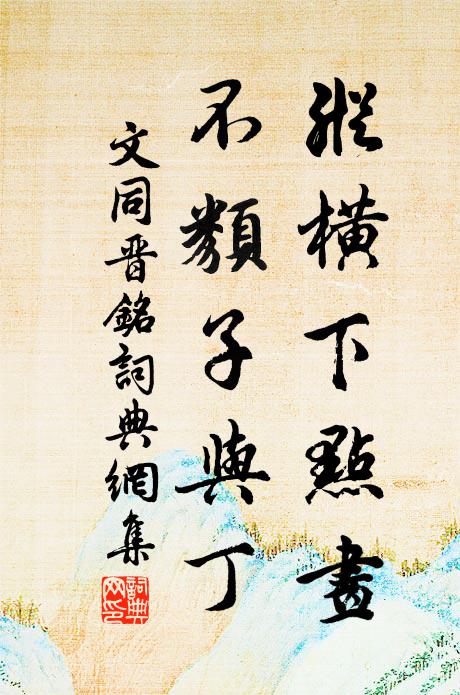 縱橫下點畫
不類子與丁
文同晋銘詞典網集
詞典網印